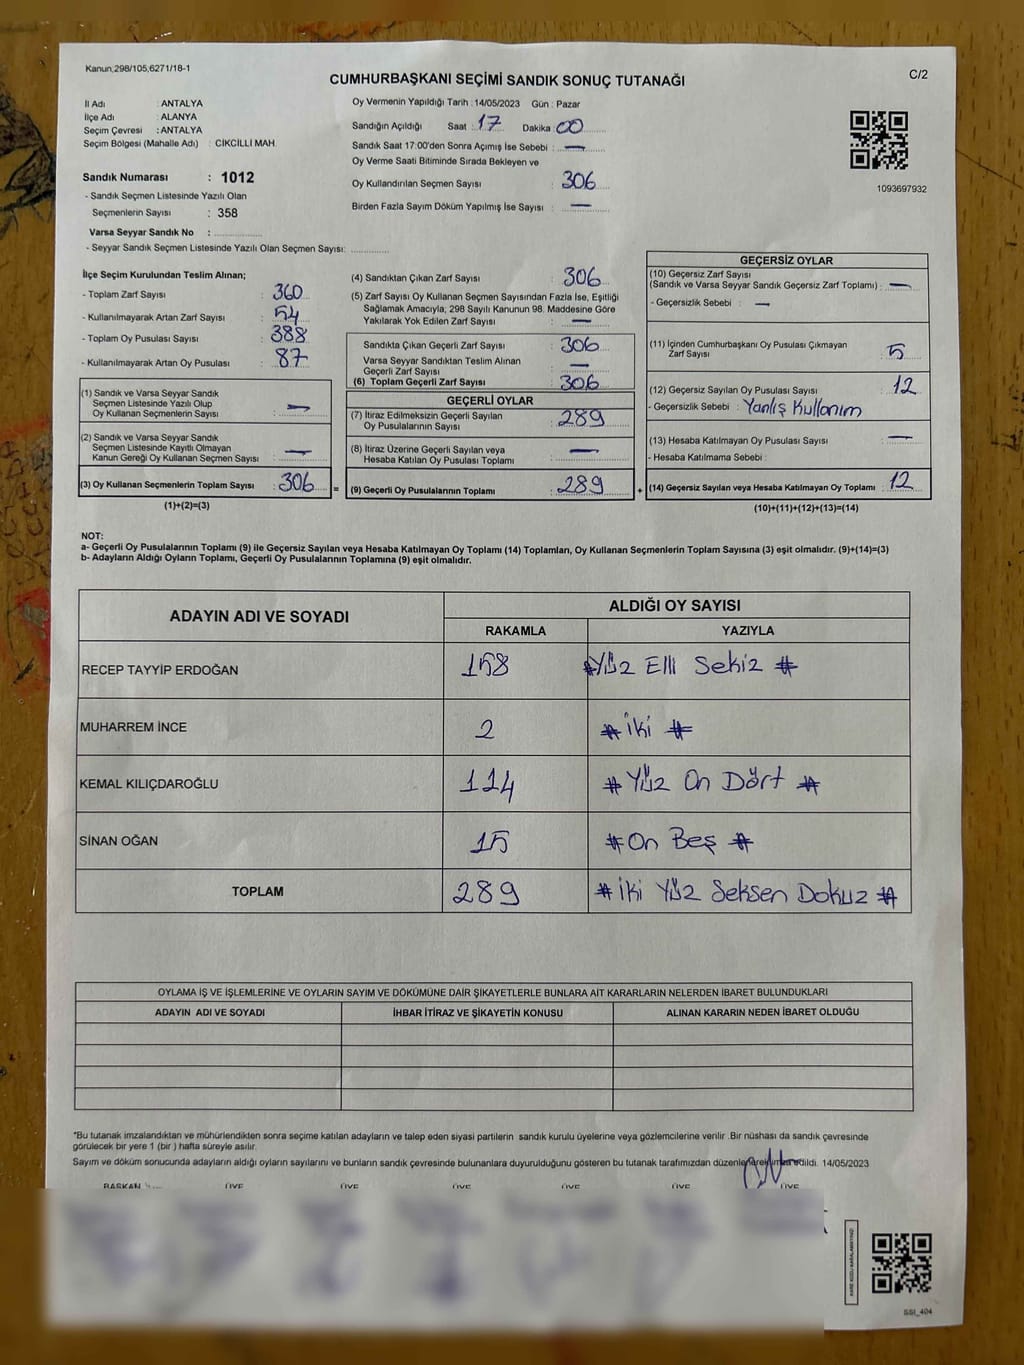 Kanun,298/105,6271/18-1
CUMHURBAŞKANI SEÇİMİ SANDIK SONUÇ TUTANAĞI
C/2
İl Adı : ANTALYA
İlçe Adı : ALANYA
Seçim Çevresi : ANTALYA
Seçim Bölgesi (Mahalle Adı) : CİKCİLLİ MAH.
Sandık Numarası : 1012
- Sandık Seçmen Listesinde Yazılı Olan
Seçmenlerin Sayısı : 358
Varsa Seyyar Sandık No :
- Seyyar Sandık Seçmen Listesinde Yazılı Olan Seçmen Sayısı:
Oy Vermenin Yapıldığı Tarih : 14/05/2023 Gün : Pazar
Sandığın Açıldığı Saat : 17 Dakika : 00
Sandık Saat 17:00'den Sonra Açımış İse Sebebi : —
Oy Verme Saati Bitiminde Sırada Bekleyen ve
Oy Kullandırılan Seçmen Sayısı : 306
Birden Fazla Sayım Döküm Yapılmış İse Sayısı : —
1093697932
İlçe Seçim Kurulundan Teslim Alınan;
- Toplam Zarf Sayısı : 360
- Kullanılmayarak Artan Zarf Sayısı : 54
- Toplam Oy Pusulası Sayısı : 388
- Kullanılmayarak Artan Oy Pusulası : 87
(1) Sandık ve Varsa Seyyar Sandık
Seçmen Listesinde Yazılı Olup
Oy Kullanan Seçmenlerin Sayısı : —
(2) Sandık ve Varsa Seyyar Sandık
Seçmen Listesinde Kayıtlı Olmayan
Kanun Gereği Oy Kullanan Seçmen Sayısı : —
(3) Oy Kullanan Seçmenlerin Toplam Sayısı : 306 =
(1)+(2)=(3)
(4) Sandıktan Çıkan Zarf Sayısı : 306
(5) Zarf Sayısı Oy Kullanan Seçmen Sayısından Fazla İse, Eşitliği
Sağlamak Amacıyla; 298 Sayılı Kanunun 98. Maddesine Göre
Yakılarak Yok Edilen Zarf Sayısı : —
Sandıkta Çıkan Geçerli Zarf Sayısı : 306
Varsa Seyyar Sandıktan Teslim Alınan
Geçerli Zarf Sayısı : —
(6) Toplam Geçerli Zarf Sayısı : 306
GEÇERLİ OYLAR
(7) İtiraz Edilmeksizin Geçerli Sayılan
Oy Pusulalarının Sayısı : 289
(8) İtiraz Üzerine Geçerli Sayılan veya
Hesaba Katılan Oy Pusulası Toplamı : —
(9) Geçerli Oy Pusulalarının Toplamı : 289 +
GEÇERSİZ OYLAR
(10) Geçersiz Zarf Sayısı
(Sandık ve Varsa Seyyar Sandık Geçersiz Zarf Toplamı) : —
- Geçersizlik Sebebi : —
(11) İçinden Cumhurbaşkanı Oy Pusulası Çıkmayan
Zarf Sayısı : 5
(12) Geçersiz Sayılan Oy Pusulası Sayısı : 12
- Geçersizlik Sebebi : Yanlış Kullanım
(13) Hesaba Katılmayan Oy Pusulası Sayısı : —
- Hesaba Katılmama Sebebi :
(14) Geçersiz Sayılan veya Hesaba Katılmayan Oy Toplamı : 12
(10)+(11)+(12)+(13)=(14)
NOT:
a- Geçerli Oy Pusulalarının Toplamı (9) ile Geçersiz Sayılan veya Hesaba Katılmayan Oy Toplamı (14) Toplamları, Oy Kullanan Seçmenlerin Toplam Sayısına (3) eşit olmalıdır. (9)+(14)=(3)
b- Adayların Aldığı Oyların Toplamı, Geçerli Oy Pusulalarının Toplamına (9) eşit olmalıdır.
ADAYIN ADI VE SOYADI ALDIĞI OY SAYISI
RAKAMLA YAZIYLA
RECEP TAYYİP ERDOĞAN 158 #Yüz Elli Sekiz #
MUHARREM İNCE 2 # iki #
KEMAL KILIÇDAROĞLU 114 # Yüz On Dört #
SİNAN OĞAN 15 #On Beş #
TOPLAM 289 # iki Yüz Seksen Dokuz #
OYLAMA İŞ VE İŞLEMLERİNE VE OYLARIN SAYIM VE DÖKÜMÜNE DAİR ŞİKAYETLERLE BUNLARA AİT KARARLARIN NELERDEN İBARET BULUNDUKLARI
ADAYIN ADI VE SOYADI İHBAR İTİRAZ VE ŞİKAYETİN KONUSU ALINAN KARARIN NEDEN İBARET OLDUĞU
*Bu tutanak imzalandıktan ve mühürlendikten sonra seçime katılan adayların ve talep eden siyasi partilerin sandık kurulu üyelerine veya gözlemcilerine verilir .Bir nüshası da sandık çevresinde
görülecek bir yere 1 (bir ) hafta süreyle asılır.
Sayım ve döküm sonucunda adayların aldığı oyların sayılarını ve bunların sandık çevresinde bulunanlara duyurulduğunu gösteren bu tutanak tarafımızdan edildi. 14/05/2023
BAŞKAN ÜYE ÜYE ÜYE ÜYE ÜYE ÜYE
SSI_404